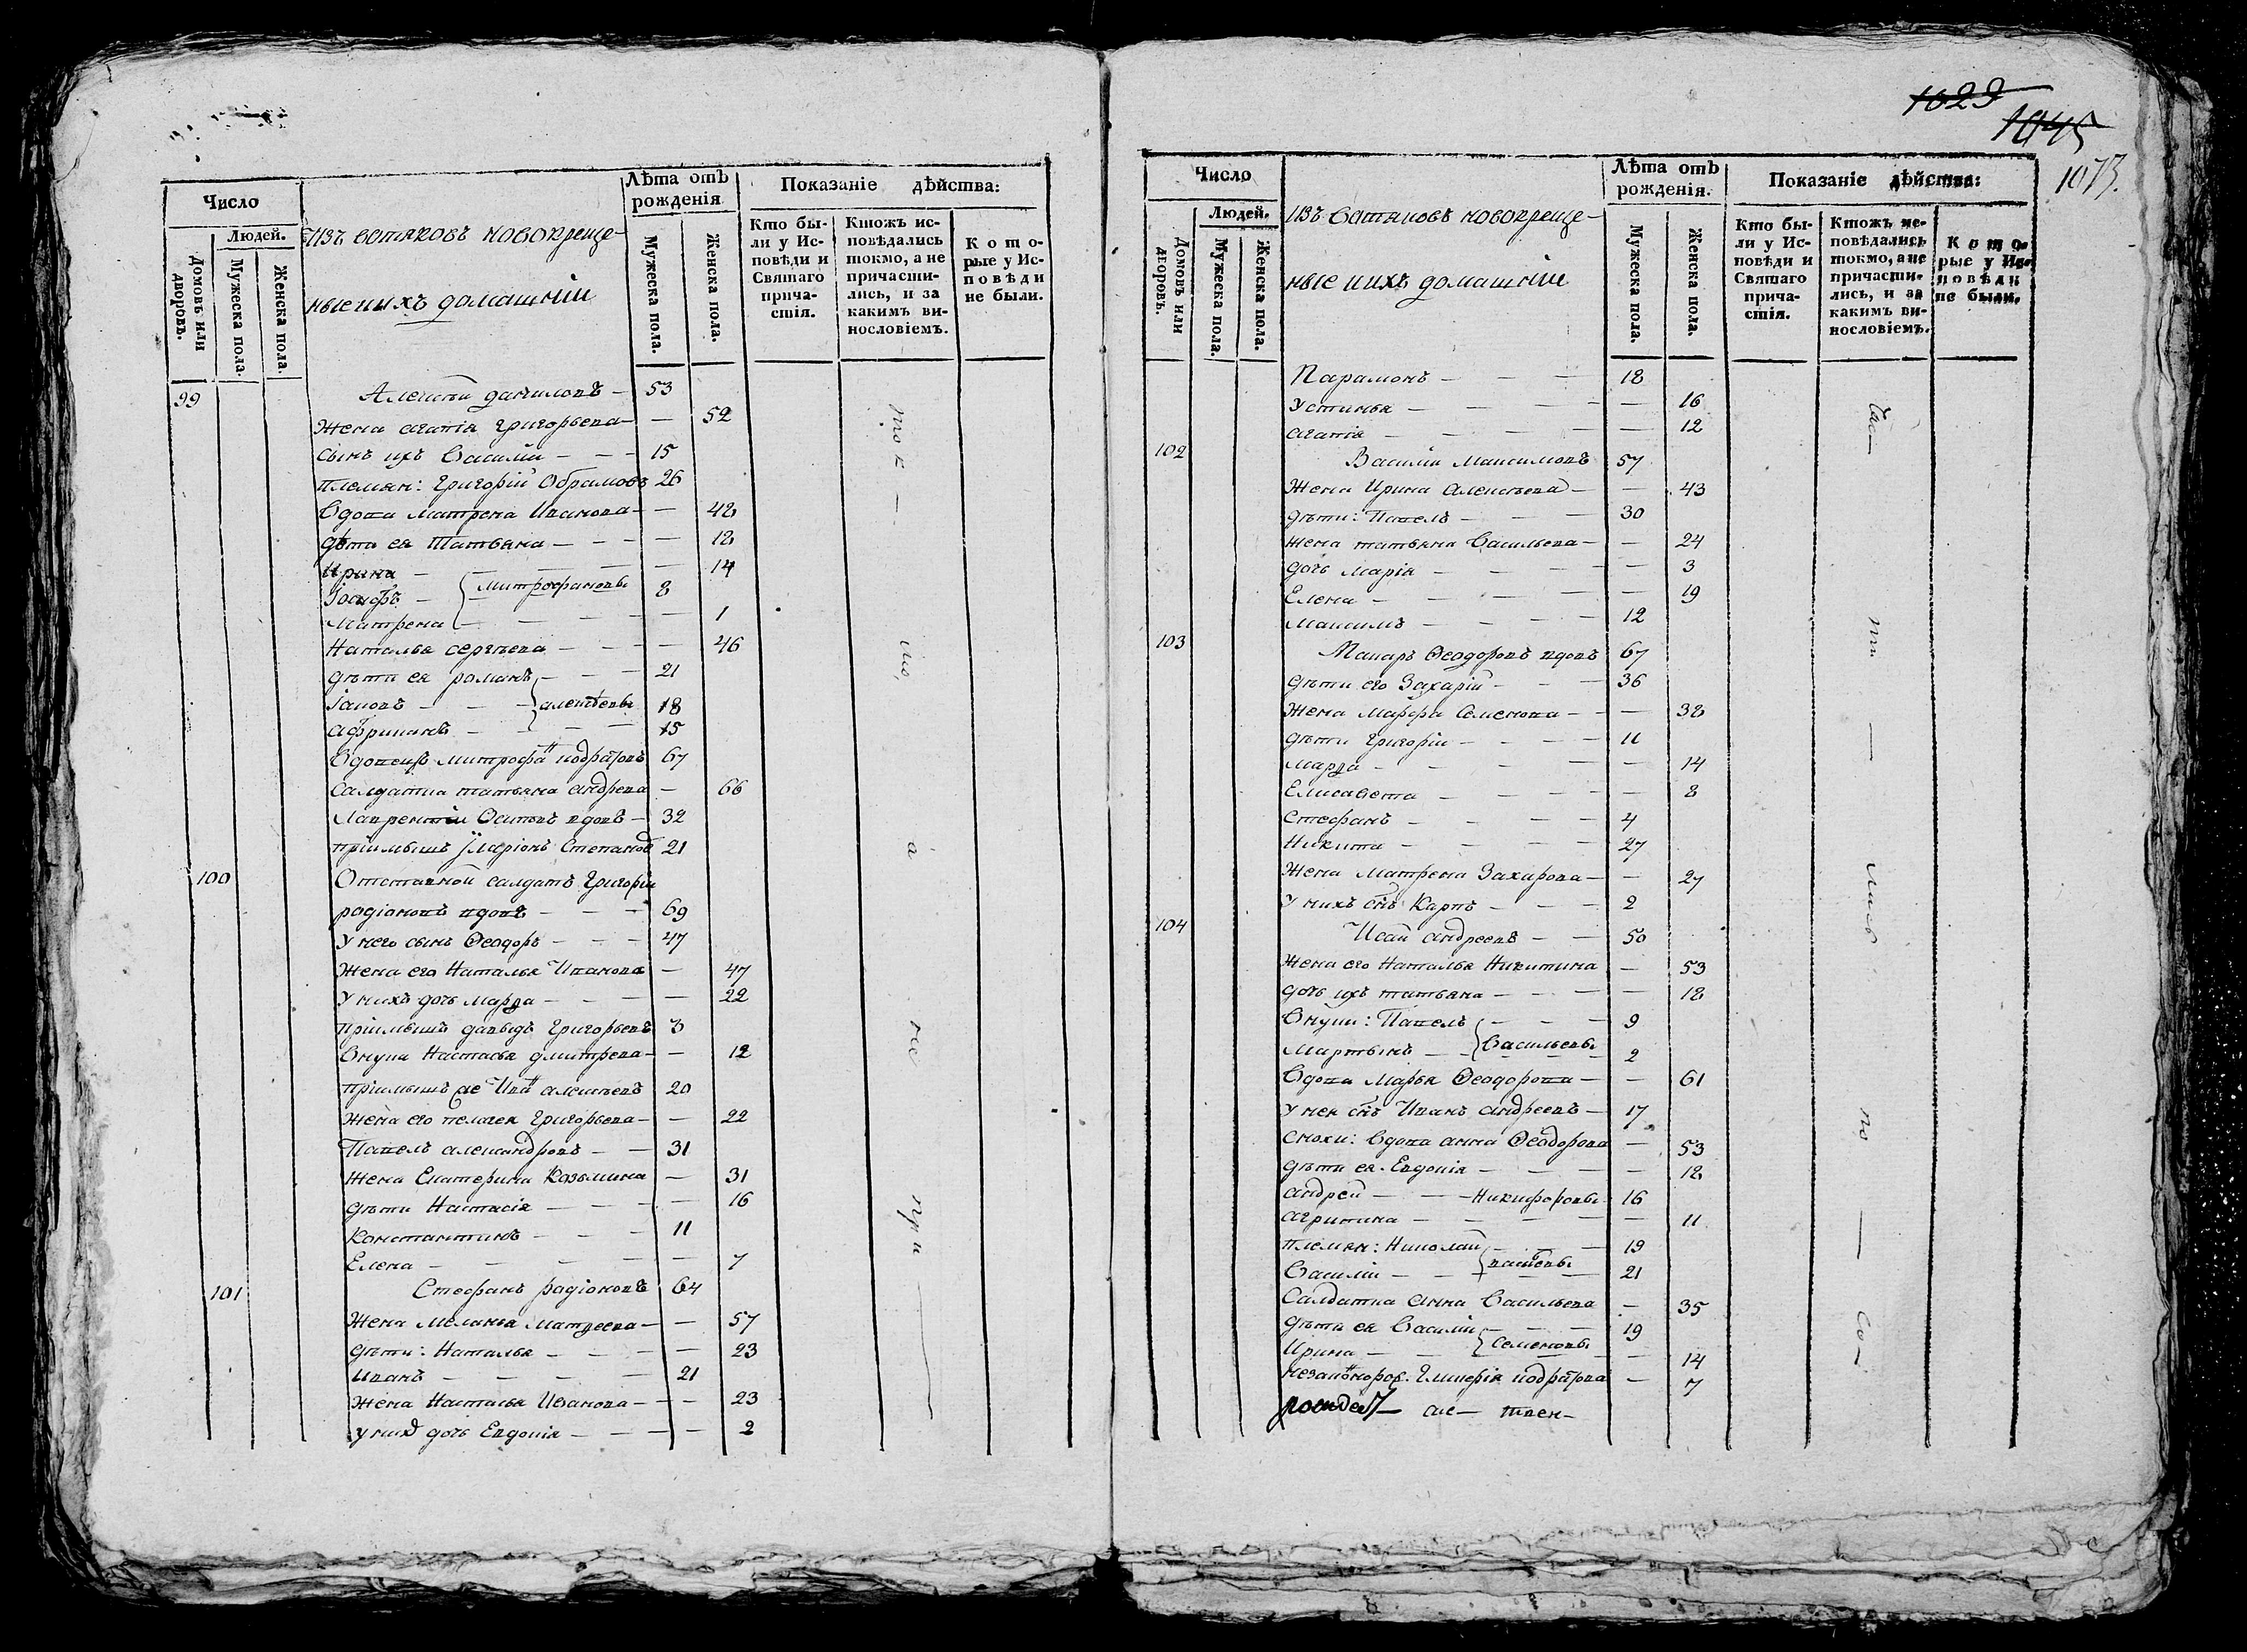 Число
Людей.
Домовъ или дворовъ.
Мужеска пола.
Женска пола.
Изъ вотяковъ новокреще-
ные ихъ домашніи
Лѣта отъ
рожденія
Мужеска пола.
Женска пола.
Показаніе дѣйства:
Кто бы-
ли у Ис-
повѣди и
Святаго
прича-
стія.
Ктожъ ис-
повѣдались
токмо, а не
причасти-
лись, и за
какимъ ви-
нословіемъ.
К о т о-
рые у Ис-
п о в ѣ д и
не были.
99 Алексѣй Даниловъ — 53
Жена Агапія Григорьева — — 52
Сынъ ихъ Василій — — — 15
Племян: Григорій Обрамовъ 26
Вдова Матрена Иванова — — 42
дѣти ея Татьяна — — — — 12
Ирина — — — — 14
Іосифъ — Митрофановы 8
Матрена — — — — 1
Наталья Сергѣева — — — — 46
дѣти ея Романъ — — — 21
Іаковъ — — — Алексѣевы 18
Африканъ — — — — 15
Вдовецъ Митрофанъ Кодратовъ 67
Салдатка Татьяна Андреева — 66
Лаврентій Осиповъ вдовъ — 32
пріимышъ Иларіонъ Степановъ 21
100 Отставной салдатъ Григорій
Радіоновъ вдовъ — — — 69
У него сынъ Ѳеодоръ — — — 47
Жена его Наталья Иванова — 47
У нихъ дочь Марѳа — — — — 22
пріимышъ Давыдъ Григорьевъ 3
Внука Настасья Дмитрева — — 12
пріимышъ Иванъ Алексѣевъ 20
Жена его Пелагея Григорьева — — 22
Павелъ Александровъ — — 31
Жена Екатерина Козьмина — 31
дѣти Настасія — — — — 16
Константинъ — — — 11
Елена — — — — — 7
101 Стефанъ Радіоновъ 64
Жена Меланья Матвеева — — 57
дѣти: Наталья — — — — 23
Иванъ — — — — 21
Жена Настасья Иванова — — — 23
у нихъ дочь Евдокія — — — — — 2
ток — мо, а не при —
1029
1045
1073.
Число
Людей.
Домовъ или дворовъ.
Мужеска пола.
Женска пола.
Изъ вотяковъ новокреще-
ные ихъ домашніи
Лѣта отъ
рожденія.
Мужеска пола.
Женска пола.
Показаніе дѣйства:
Кто бы-
ли у Ис-
повѣди и
Святаго
прича-
стія.
Ктожъ ис-
повѣдались
токмо, а не
причасти-
лись, и за
какимъ ви-
нословіемъ.
К о т о-
рые у Ис-
п о в ѣ д и
не были.
Парамонъ — — — 18
Устинья — — — — — 16
Агапія — — — — — — 12
102 Василій Максимовъ 57
Жена Ирина Алексѣева — — 43
дѣти: Павелъ — — — 30
Жена Татьяна Васильева — — 24
дочь Марія — — — — — 3
Елена — — — — — 19
Максимъ — — — — 12
103 Макаръ Ѳеодоровъ вдовъ 67
дѣти его Захарій — — — 36
Жена Марфа Семенова — — — 38
дѣти Григорій — — — — 11
Марѳа — — — — — 14
Елисавета — — — — — 8
Стефанъ — — — — 4
Никита — — — — 27
Жена Матрена Захарова — — 27
У нихъ сынъ Карпъ — — — 2
104 Исай Андреевъ — — 50
Жена его Наталья Никитина — 53
дочь ихъ Татьяна — — — — 18
Внуки: Павелъ — — — 9
Мартынъ — — Васильевы 2
Вдова Марья Ѳеодорова — — 61
У нея сынъ Иванъ Андреевъ — 17
Снохи: Вдова Анна Ѳеодорова — 53
дѣти ея. Евдокія — — — — 18
Андрей — — — Никифоровы 16
Агрипина — — — — — 11
Племян: Николай — — — 19
Василій — — — — 21
Салдатка Анна Васильева — 35
дѣти ея Василій — — — 19
Ирина — — Семеновы — 14
незаконорож. Гликерія Кодратова — 7
част — ти — лись по — Со —